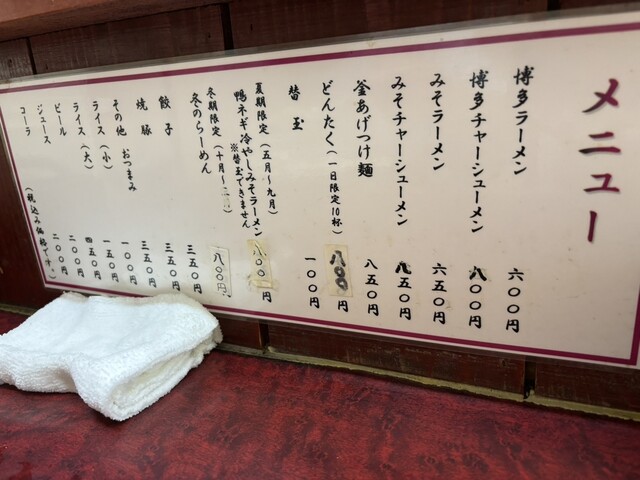 メニュー
博多ラーメン 六〇〇円
博多チャーシューメン 八〇〇円
みそラーメン 六五〇円
みそチャーシューメン 八五〇円
釜あげつけ麺 八五〇円
どんたく(一日限定10杯) 八〇〇円
替玉 一〇〇円
夏期限定(五月〜九月)
鴨ネギ冷やしみそラーメン 八〇〇円
※替玉できません
冬期限定(十月〜
冬のらーめん 八〇〇円
餃子 三五〇円
焼豚 三五〇円
その他 おつまみ 三五〇円
ライス(小) 一〇〇円
ライス(大) 一五〇円
ビール 四五〇円
ジュース 二〇〇円
コーラ 二〇〇円
(税込み価格です。)